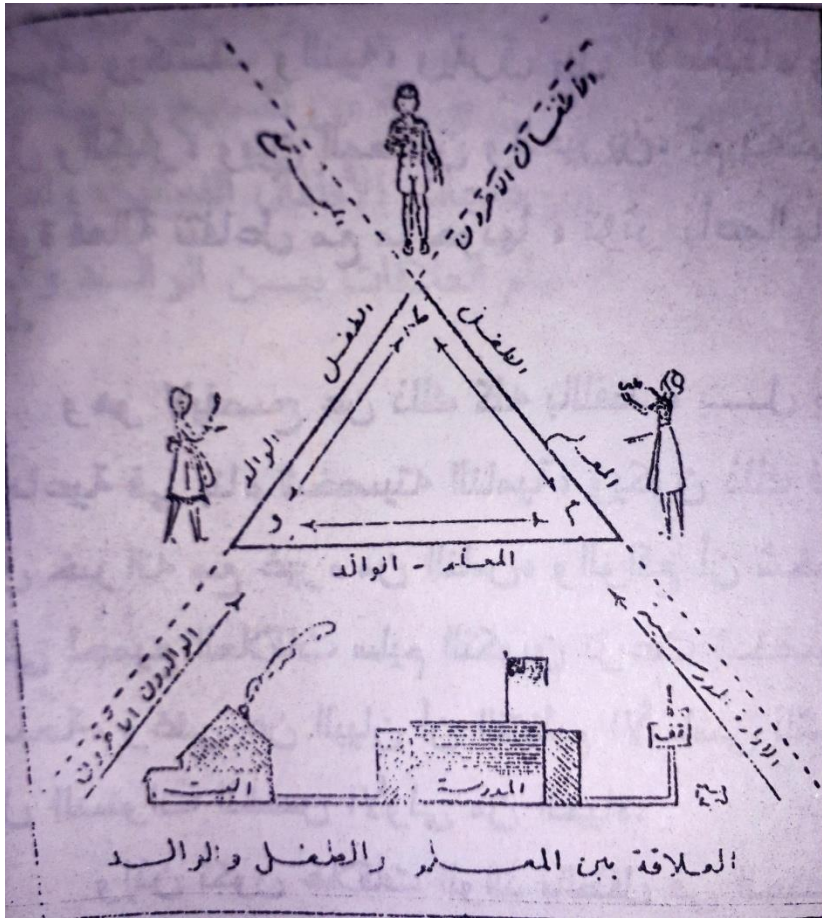 الأطفال الآخرون
الطفل
الطفل
ط
الوالد
المعلم
و
م
المعلم - الوالد
الوالدون الآخرون
الإدارة المدرسية
قف
البيت
المدرسة
العلاقة بين المعلم والطفل والوالد